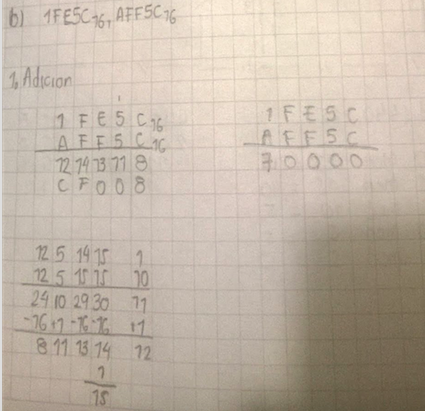 b) 1FE5C16, AFF5C16
1. Adicion
1
1 F E 5 C16
A F F 5 C16
12 14 13 11 8
C F 0 0 8
1 F E 5 C
A F F 5 C
7 0 0 0 0
12 5 14 15 1
12 5 15 15 10
24 10 29 30 11
-16 +1 -16 -16 +1
8 11 13 14 12
1
15